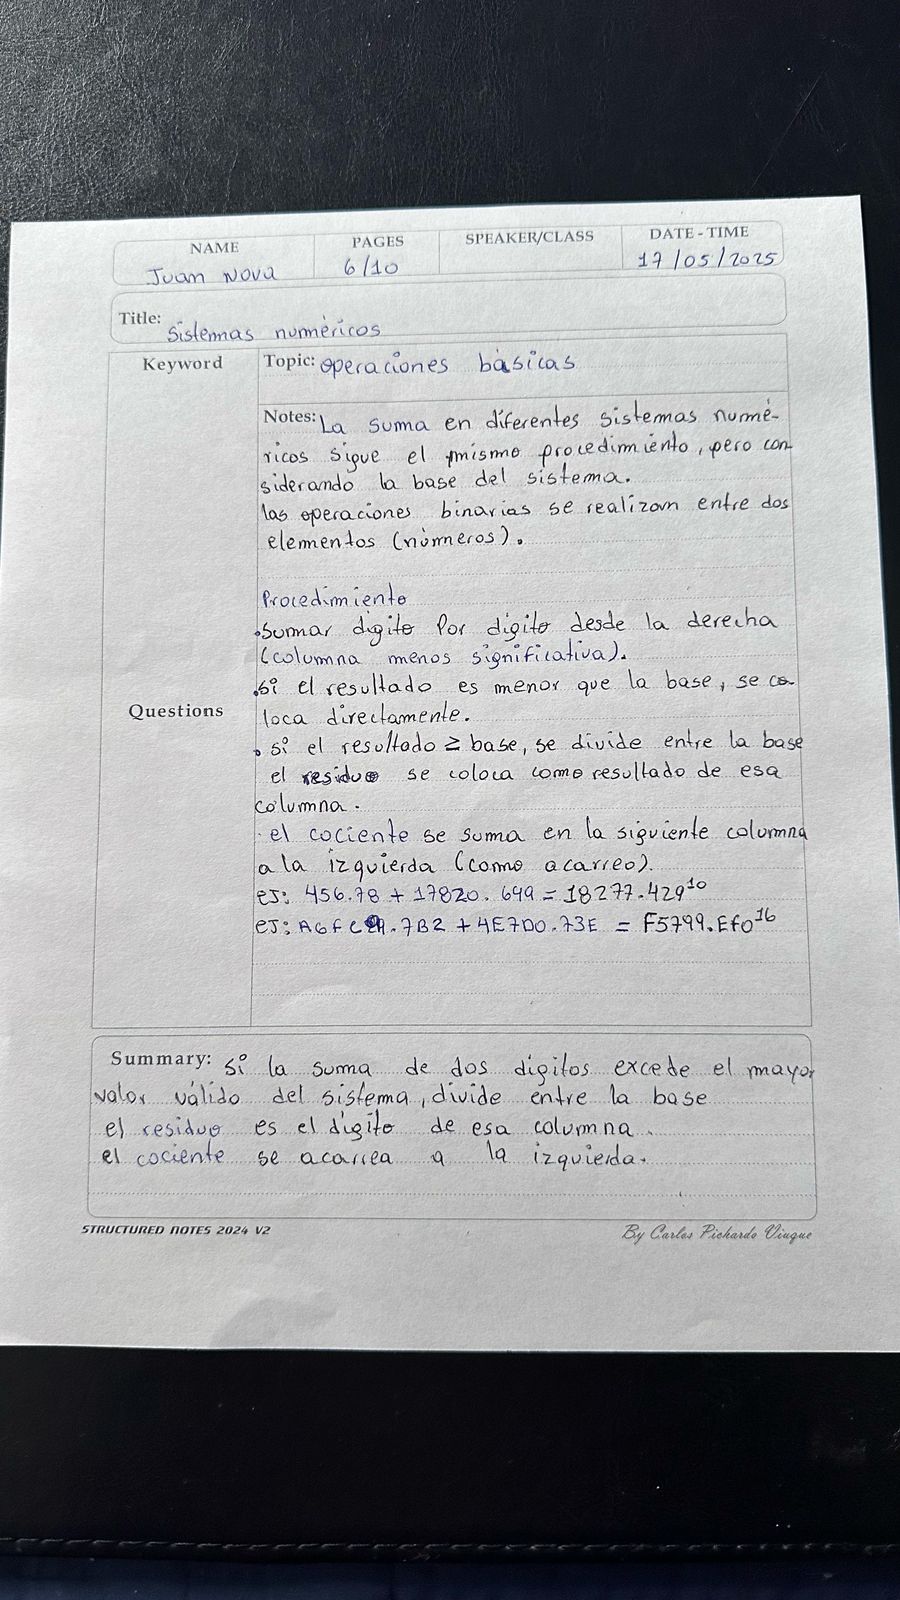 NAME
PAGES
SPEAKER/CLASS
DATE - TIME
Juan Nova
6/10
17/05/2025
Title: Sistemas numéricos
Keyword
Topic: operaciones básicas
Notes: La suma en diferentes sistemas numé-
ricos sigue el mismo procedimiento, pero con-
siderando la base del sistema.
las operaciones binarias se realizan entre dos
elementos (números).
Procedimiento
.Sumar digito Por digito desde la derecha
(columna menos significativa).
.si el resultado es menor que la base, se co-
loca directamente.
. si el resultado ≥ base, se divide entre la base
el residuo se coloca como resultado de esa
columna.
. el cociente se suma en la siguiente columna
a la izquierda (como acarreo).
EJ: 456.78 + 17820.649 = 18277.429¹⁰
EJ: + 4E7D0.73E = F5799.Ef0¹⁶
Questions
Summary: Si la suma de dos digitos excede el mayor
valor válido del sistema, divide entre la base
el residuo es el dígito de esa columna.
el cociente se acarrea a la izquierda.
STRUCTURED NOTES 2024 V2
By Carlos Pichardo Viuque